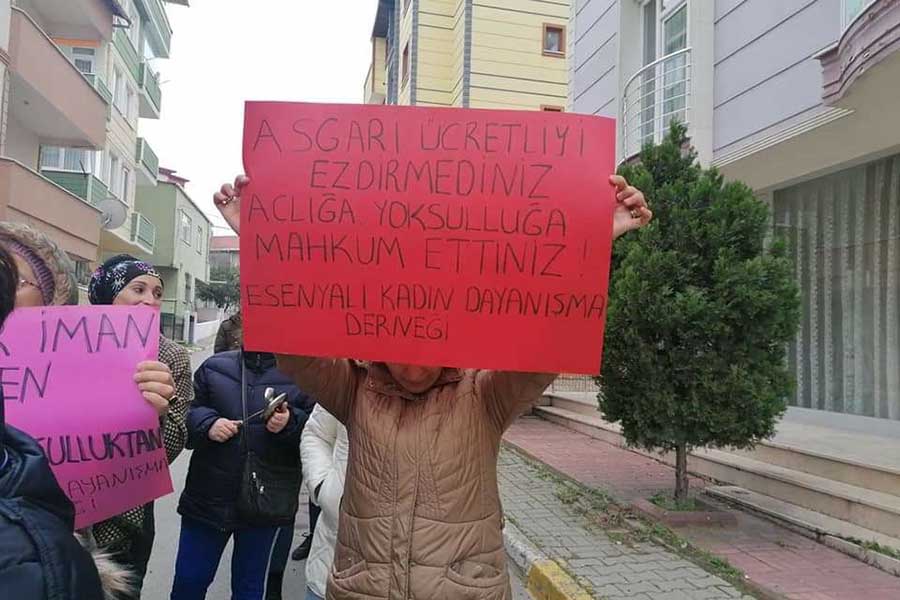 ASGARİ ÜCRETLİYİ
EZDİRMEDİNİZ
AÇLIĞA YOKSULLUĞA
MAHKUM ETTİNİZ !
ESENYALI KADIN DAYANIŞMA
DERNEĞİ
İMAN
EN
SULLUKTAN
DAYANIŞMA